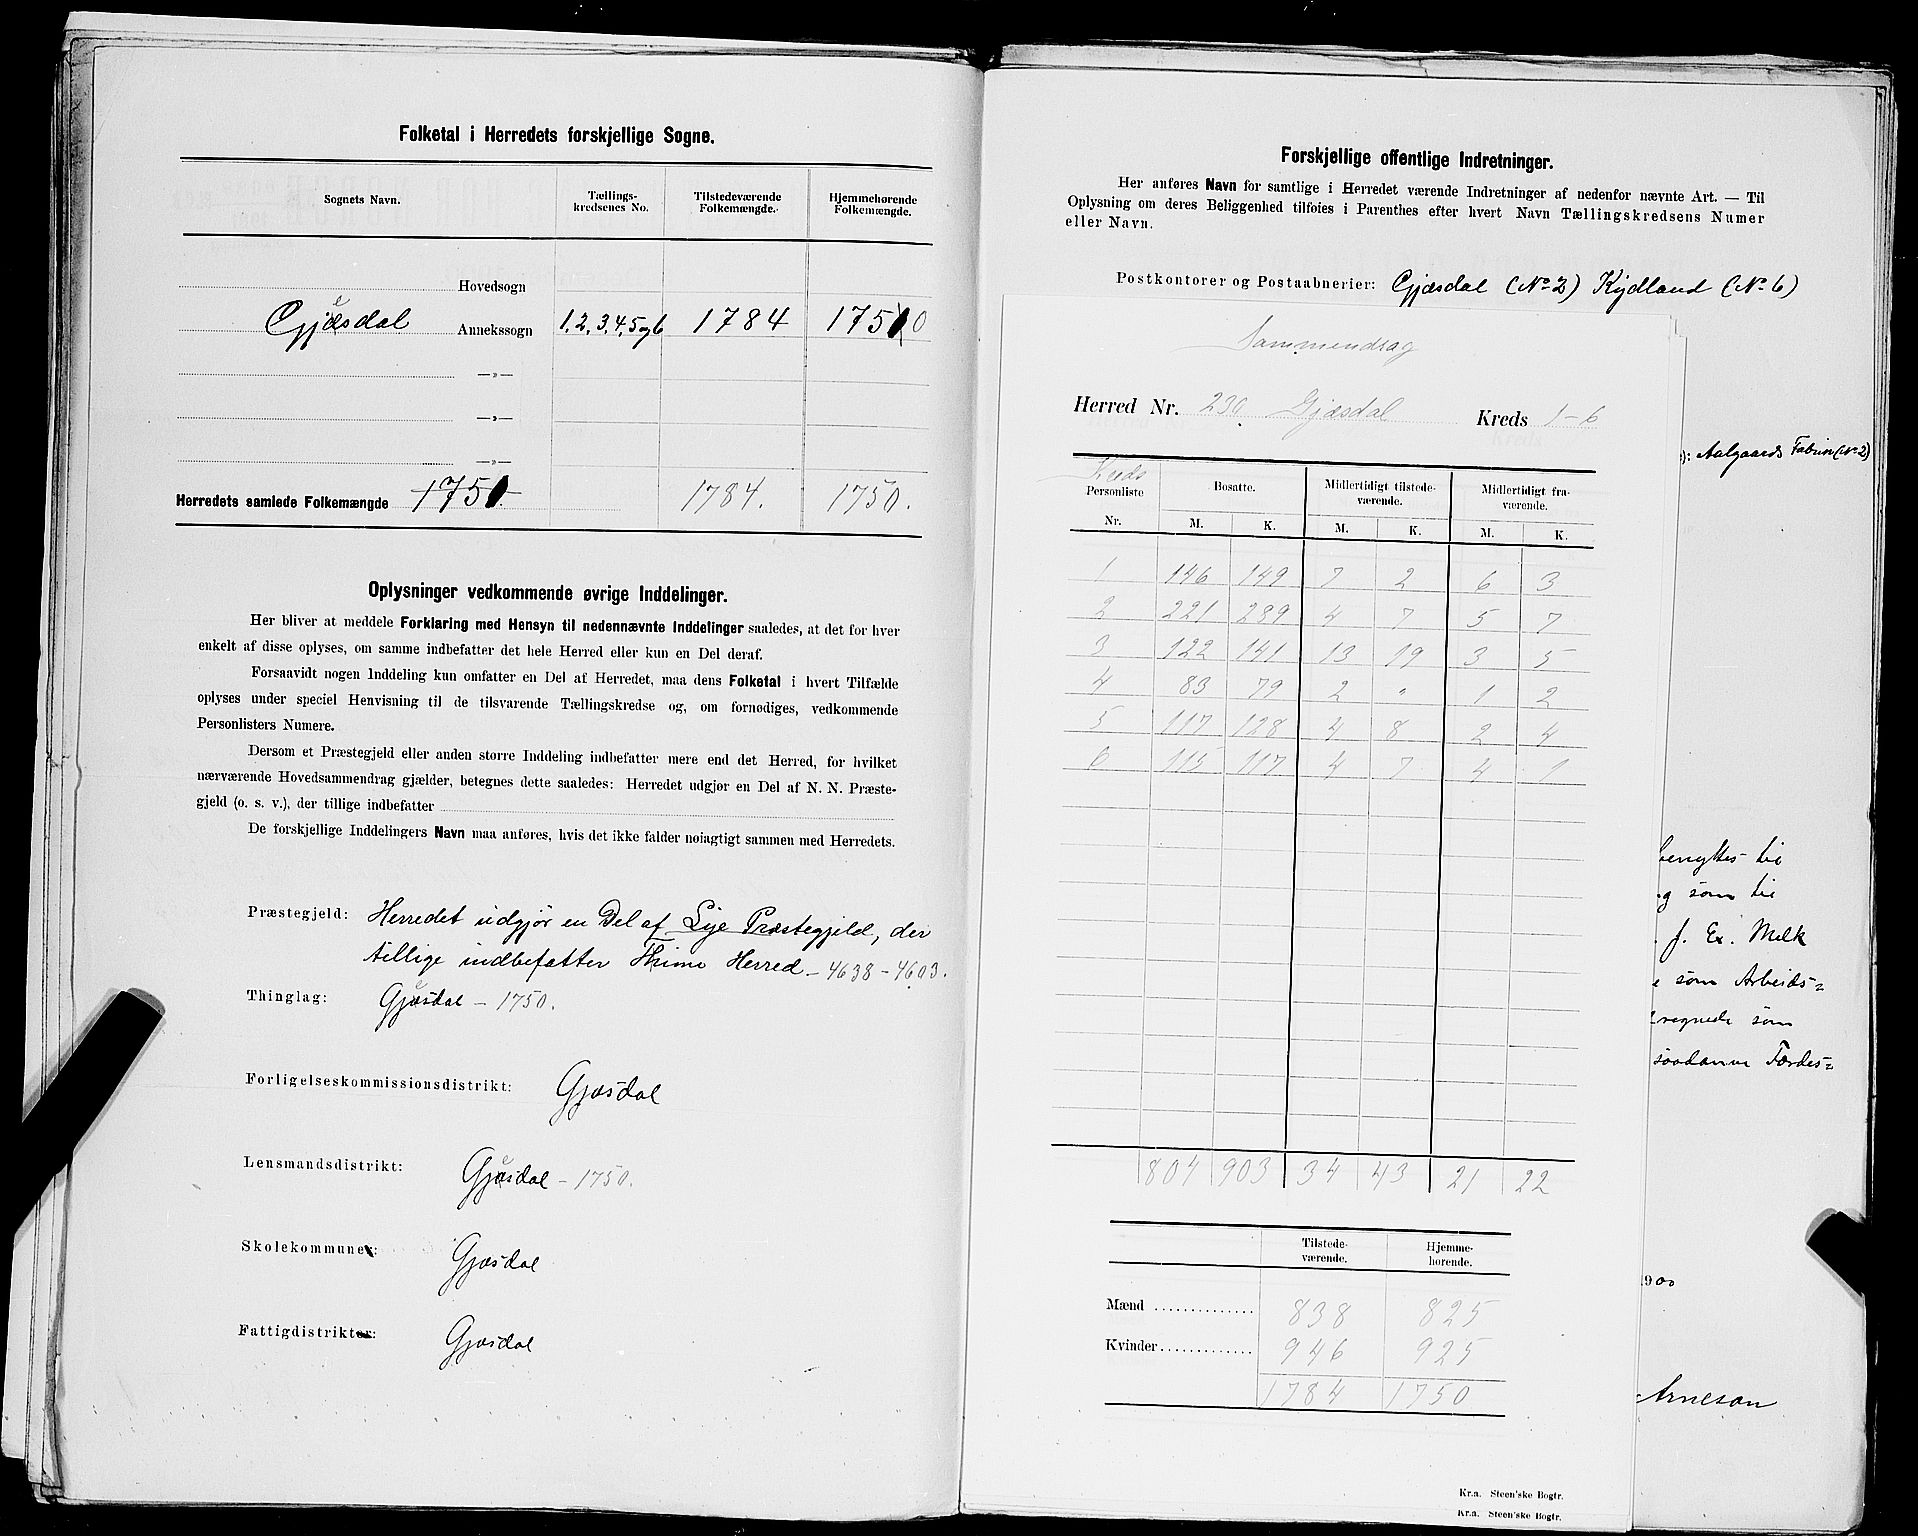 Folketal i Herredets forskjellige Sogne.
Sognets Navn. Tællings-kredsenes No. Tilstedeværende Folkemængde. Hjemmehørende Folkemængde.
Hovedsogn
Gjæsdal Annekssogn 1, 2, 3, 4, 5 og 6 1784 1750
—»—
—»—
—»—
Herredets samlede Folkemængde 1750 1784. 1750.
Oplysninger vedkommende øvrige Inddelinger.
Her bliver at meddele Forklaring med Hensyn til nedennævnte Inddelinger saaledes, at det for hver
enkelt af disse oplyses, om samme indbefatter det hele Herred eller kun en Del deraf.
Forsaavidt nogen Inddeling kun omfatter en Del af Herredet, maa dens Folketal i hvert Tilfælde
oplyses under speciel Henvisning til de tilsvarende Tællingskredse og, om fornødiges, vedkommende
Personlisters Numere.
Dersom et Præstegjeld eller anden större Inddeling indbefatter mere end det Herred, for hvilket
nærværende Hovedsammendrag gjælder, betegnes dette saaledes: Herredet udgjør en Del af N. N. Præste-
gjeld (o. s. v.), der tillige indbefatter
De forskjellige Inddelingers Navn maa anføres, hvis det ikke falder nöiagtigt sammen med Herredets.
Præstegjeld: Herredet udgjør en Del af Lye Præstegjeld, der
tillige indbefatter Thime Herred - 4638 - 4603.
Thinglag: Gjæsdal - 1750.
Forligelseskommissionsdistrikt: Gjæsdal
Lensmandsdistrikt: Gjæsdal - 1750.
Skolekommuner: Gjæsdal
Fattigdistrikter: Gjæsdal
Forskjellige offentlige Indretninger.
Her anføres Navn for samtlige i Herredet værende Indretninger af nedenfor nævnte Art. — Til
Oplysning om deres Beliggenhed tilföies i Parenthes efter hvert Navn Tællingskredsens Numer
eller Navn.
Postkontorer og Postaabnerier: Gjæsdal (No 2) Kydland (No 6)
Sammendrag
Herred Nr. 230 Gjæsdal Kreds 1-6
Kreds
Personliste Nr. Bosatte. Midlertidigt tilstede-værende. Midlertidigt fra-værende.
M. K. M. K. M. K.
1 146 149 7 2 6 3
2 221 289 4 7 5 7
3 122 141 13 19 3 5
4 83 79 2 " 1 2
5 117 128 4 8 2 4
6 115 117 4 7 4 1
804 903 34 43 21 22
Tilstede-værende. Hjemme-hørende.
Mænd 838 825
Kvinder 946 925
1784 1750
Kr.a. Steen'ske Bogtr.
Kr.a. Steen'ske Bogtr.
): Aalgaards Fabrik (No 2)
benyttes til
g som til
f. Ex. Melk
e som Arbeids=
regnede som
saadanne Færdes=
900
Arneson